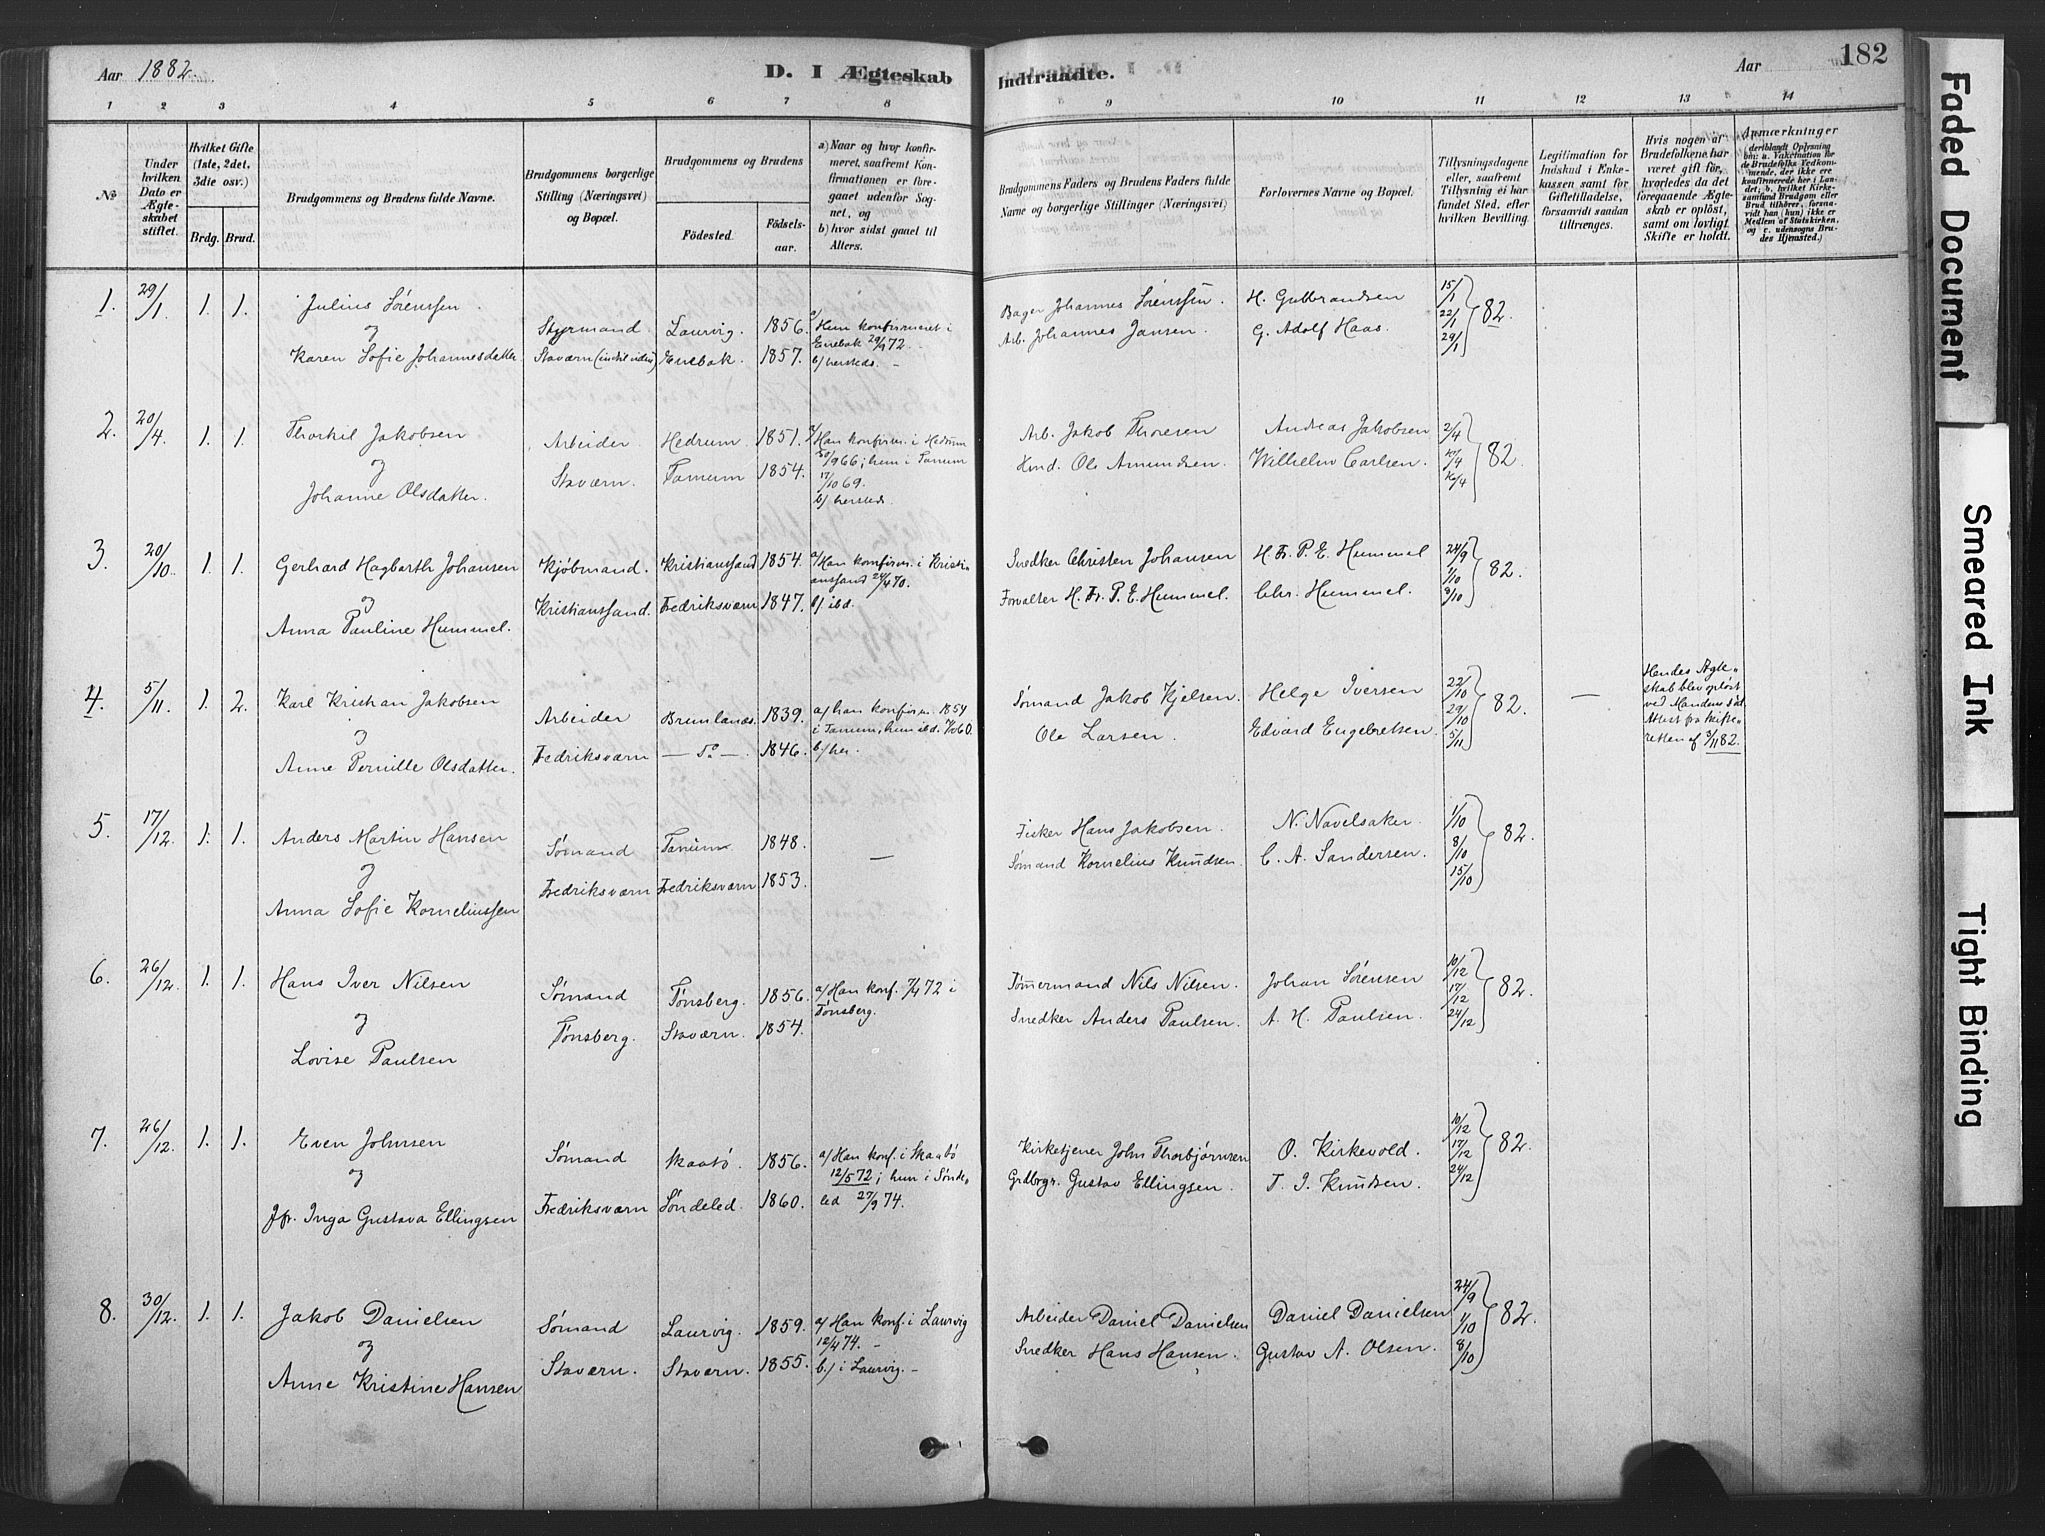 Aar 1882.
D. I Ægteskab
Indtraadte.
Aar
182
1 2 3 4 5 6 7 8 9 10 11 12 13 14
No
Under hvilken Dato er Ægteskabet stiftet.
Hvilket Gifte (1ste, 2det, 3die osv.)
Brdg. Brud.
Brudgommens og Brudens fulde Navne.
Brudgommens borgerlige Stilling (Næringsvei) og Bopæl.
Brudgommens og Brudens
Fødested.
Fødselsaar.
a) Naar og hvor konfirmeret, saafremt Konfirmationen er foregaaet udenfor Sognet, og
b) hvor sidst gaaet til Alters.
Brudgommens Faders og Brudens Faders fulde Navne og borgerlige Stillinger (Næringsvei)
Forlovernes Navne og Bopæl.
Tillysningsdagene eller, saafremt Tillysning ei har fundet Sted, efter hvilken Bevilling.
Legitimation for Indskud i Enkekassen samt for Giftetilladelse, forsaavidt saadan tiltrænges.
Hvis nogen af Brudefolkene har været gift før, hvorledes da det foregaaende Ægteskab er opløst, samt om lovligt Skifte er holdt.
Anmærkninger (deriblandt Oplysning om: a. Vakcination for de Brudefolks Vedkommende, der ikke ere konfirmerede her i Landet; b. hvilket Kirkesamfund Brudgom eller Brud tilhører, forsaavidt han (hun) ikke er Medlem af Statskirken, og c. udensogns Brudes Hjemsted.)
1. 29/1 1. 1. Julius Sørenssen og Karen Sofie Johannesdatter
Styrmand. Staværn
Laurvig. 1856.
Enebak. 1857.
a/ Hun konfirmeret i Enebak 29/9 72.
b/ hersteds. –
Bager Johannes Sørenssen.
Arb. Johannes Jansen.
H. Gulbrandsen
G. Adolf Haas.
15/1 22/1 29/1 82.
2. 20/4 1. 1. Thorkil Jakobsen og Johanne Olsdatter.
Arbeider Staværn.
Hedrum. 1851.
Tanum 1854.
a/ Han konfirm. i Hedrum 30/9 66; hun i Tanum 17/10 69.
b/ hersteds.
Arb. Jakob Thoresen
Kmd. Ole Amundsen.
Andreas Jakobsen
Wilhelm Carlsen.
2/4 10/4 16/4 82.
3. 20/10. 1. 1. Gerhard Hagbarth Johansen og Anna Pauline Hummel.
Kjøbmand. Kristianssand.
Kristianssand 1854.
Fredriksværn 1847.
a/ Han konfirm. i Kristianssand 24/4 70.
b/ ibd.
Snedker Christen Johansen
Forvalter H. Fr. P. E. Hummel.
H. Fr. P. E. Hummel
Chr. Hummel.
24/9 1/10 8/10 82.
4. 5/11. 1. 2. Karl Kristian Jakobsen og Anne Pernille Olsdatter.
Arbeider Fredriksværn
Brunlanæs. 1839.
— Do — 1846.
a/ han konfirm. 1854 i Tanum, hun ibd.
b/ her.
Sømand Jakob Kjelsen.
Ole Larsen.
Helge Iversen
Edvard Engebretsen.
22/10 29/10 5/11 82.
—
Hendes Ægteskab blev opløst ved Mandens død. Attest fra Skifteretten af 3/11 82.
5. 17/12. 1. 1. Anders Martin Hansen og Anna Sofie Korneliussen
Sømand Fredriksværn
Tanum 1848.
Fredriksværn 1853.
—
Fisker Hans Jakobsen.
Sømand Kornelius Knudsen.
N. Navelsaker.
C. A. Sandersen.
1/10 8/10 15/10 82.
6. 26/12. 1. 1. Hans Iver Nilsen og Lovise Paulsen
Sømand Tønsberg.
Tønsberg. 1856.
Staværn. 1854.
a/ Han konf. 7/4 72 i Tønsberg.
Tømmermand Nils Nilsen.
Snedker Anders Paulsen.
Johan Sørensen
A. H. Paulsen.
10/12 17/12 24/12 82.
7. 26/12. 1. 1. Even Johnsen og Jfr. Inga Gustava Ellingsen
Sømand Fredriksværn
Skaatø. 1856.
Søndeled. 1860.
a/ Han konf. i Skaatø 12/5 72; hun i Søndeled 27/9 74.
Kirketjener John Thorbjørnsen
Grdbrgr. Gustav Ellingsen.
O. Kirkevold.
T. J. Knudsen.
10/12 17/12 24/12 82.
8. 30/12. 1. 1. Jakob Danielsen og Anne Kristine Hansen
Sømand Staværn.
Laurvig. 1859.
Staværn. 1855.
a/ Han konf. i Laurvig 12/4 74. –
b./ i Laurvig. –
Arbeider Daniel Danielsen
Snedker Hans Hansen.
Daniel Danielsen
Gustav A. Olsen.
24/9 1/10 8/10 82.
Faded Document
Smeared Ink
Tight Binding